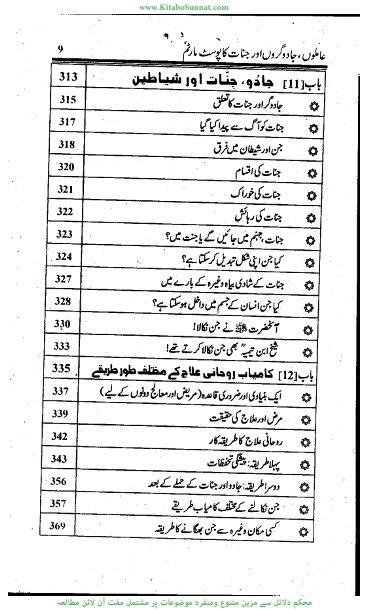 www.KitaboSunnat.com
عاملوں، جادوگروں اور جنات کا پوسٹ مارٹم 9
باب [11] جادو، جنّات اور شیاطین 313
جادوگر اور جنات کا تعلق 315
جنات کو آگ سے پیدا کیا گیا 317
جن اور شیطان میں فرق 318
جنات کی اقسام 320
جنات کی خوراک 321
جنات کی رہائش 322
جنات جہنم میں جائیں گے یا جنت میں؟ 323
کیا جن اپنی شکل تبدیل کر سکتا ہے؟ 324
جنات کے شادی بیاہ وغیرہ کے بارے میں 327
کیا جن انسان کے جسم میں داخل ہو سکتا ہے؟ 328
آنحضرت ﷺ نے جن نکالا! 330
شیخ ابن تیمیہؒ بھی جن نکالا کرتے تھے! 333
باب [12] کامیاب روحانی علاج کے مختلف طور طریقے 335
ایک بنیادی اور ضروری قاعدہ (مریض اور معالج دونوں کے لیے) 337
مرض اور علاج کی حقیقت 339
روحانی علاج کا طریقہ کار 342
پہلا طریقہ: پیشگی تحفظات 343
دوسرا طریقہ: جادو اور جنات کے حملے کے بعد 356
جن نکالنے کے مختلف کامیاب طریقے 357
کسی مکان وغیرہ سے جن بھگانے کا طریقہ 369
محکم دلائل سے مزین متنوع ومنفرد موضوعات پر مشتمل مفت آن لائن مطالعہ